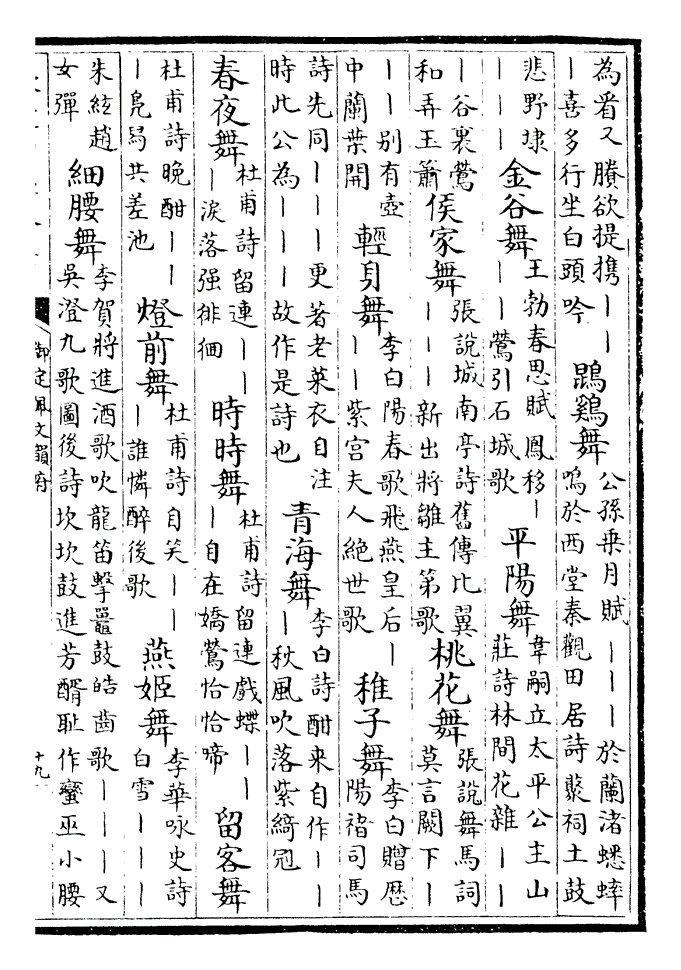 為看又賸欲提携丨丨丨喜多行坐白頭吟 鵾鷄舞 公孫乗月賦丨丨丨於蘭渚蟋蟀鳴於西堂秦觀田居詩藂祠土鼓
悲野埭丨丨丨 金谷舞 王勃春思賦鳳移丨丨丨鶯引石城歌 平陽舞 韋嗣立太平公主山莊詩林間花雜丨丨
丨谷裏鶯和弄玉簫 侯家舞 張說城南亭詩舊傳比翼丨丨丨新出將雛主第歌 桃花舞 張說舞馬詞莫言闕下丨
丨丨别有壺中蘭葉開 輕身舞 李白陽春歌飛燕皇后丨丨丨紫宫夫人絶世歌 稚子舞 李白贈歴陽褚司馬
詩先同丨丨丨更著老萊衣自注時此公為丨丨丨故作是詩也 青海舞 李白詩酣来自作丨丨丨秋風吹落紫綺冠
春夜舞 杜甫詩留連丨丨丨淚落强徘徊 時時舞 杜甫詩留連戲蝶丨丨丨自在嬌鶯恰恰啼 留客舞
杜甫詩晚酣丨丨丨鳬舄共差池 燈前舞 杜甫詩自笑丨丨丨誰憐醉後歌 燕姬舞 李華咏史詩白雪丨丨丨
朱絃趙女彈 細腰舞 李賀將進酒歌吹龍笛擊鼉鼓皓齒歌丨丨丨又吳澄九歌圖後詩坎坎鼓進芳醑耻作蠻巫小腰
御定佩文韻府
十九